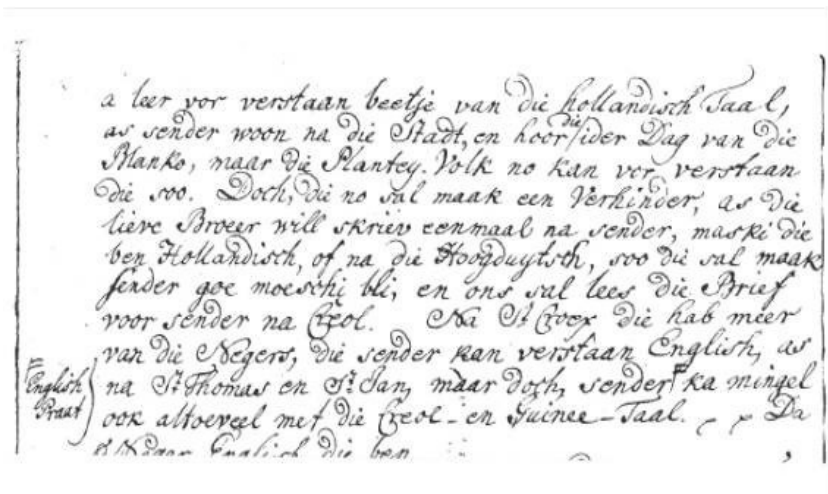 a leer vor verstaan beetje van die hollandisch Taal,
as sender woon na die Stadt, en hoor die ider Dag van die
Blanko, maar die Plantey-Volk no kan vor verstaan
die soo. Doch, die no sal maak een Verhinder, as die
lieve Broeer will skriev eenmaal na sender, maski die
ben Hollandisch, of na die Hoogduytsch, soo die sal maak
sender goe moeschi bli, en ons sal lees die Brief
voor sender na Creol. Na St Croex die hab meer
van die Negers, die sender kan verstaan English, as
na St Thomas en St Jan, maar doch, sender ka mingel
ook altoeveel met die Creol- en Guinee-Taal. Da
English
Praat
Neger English die ben